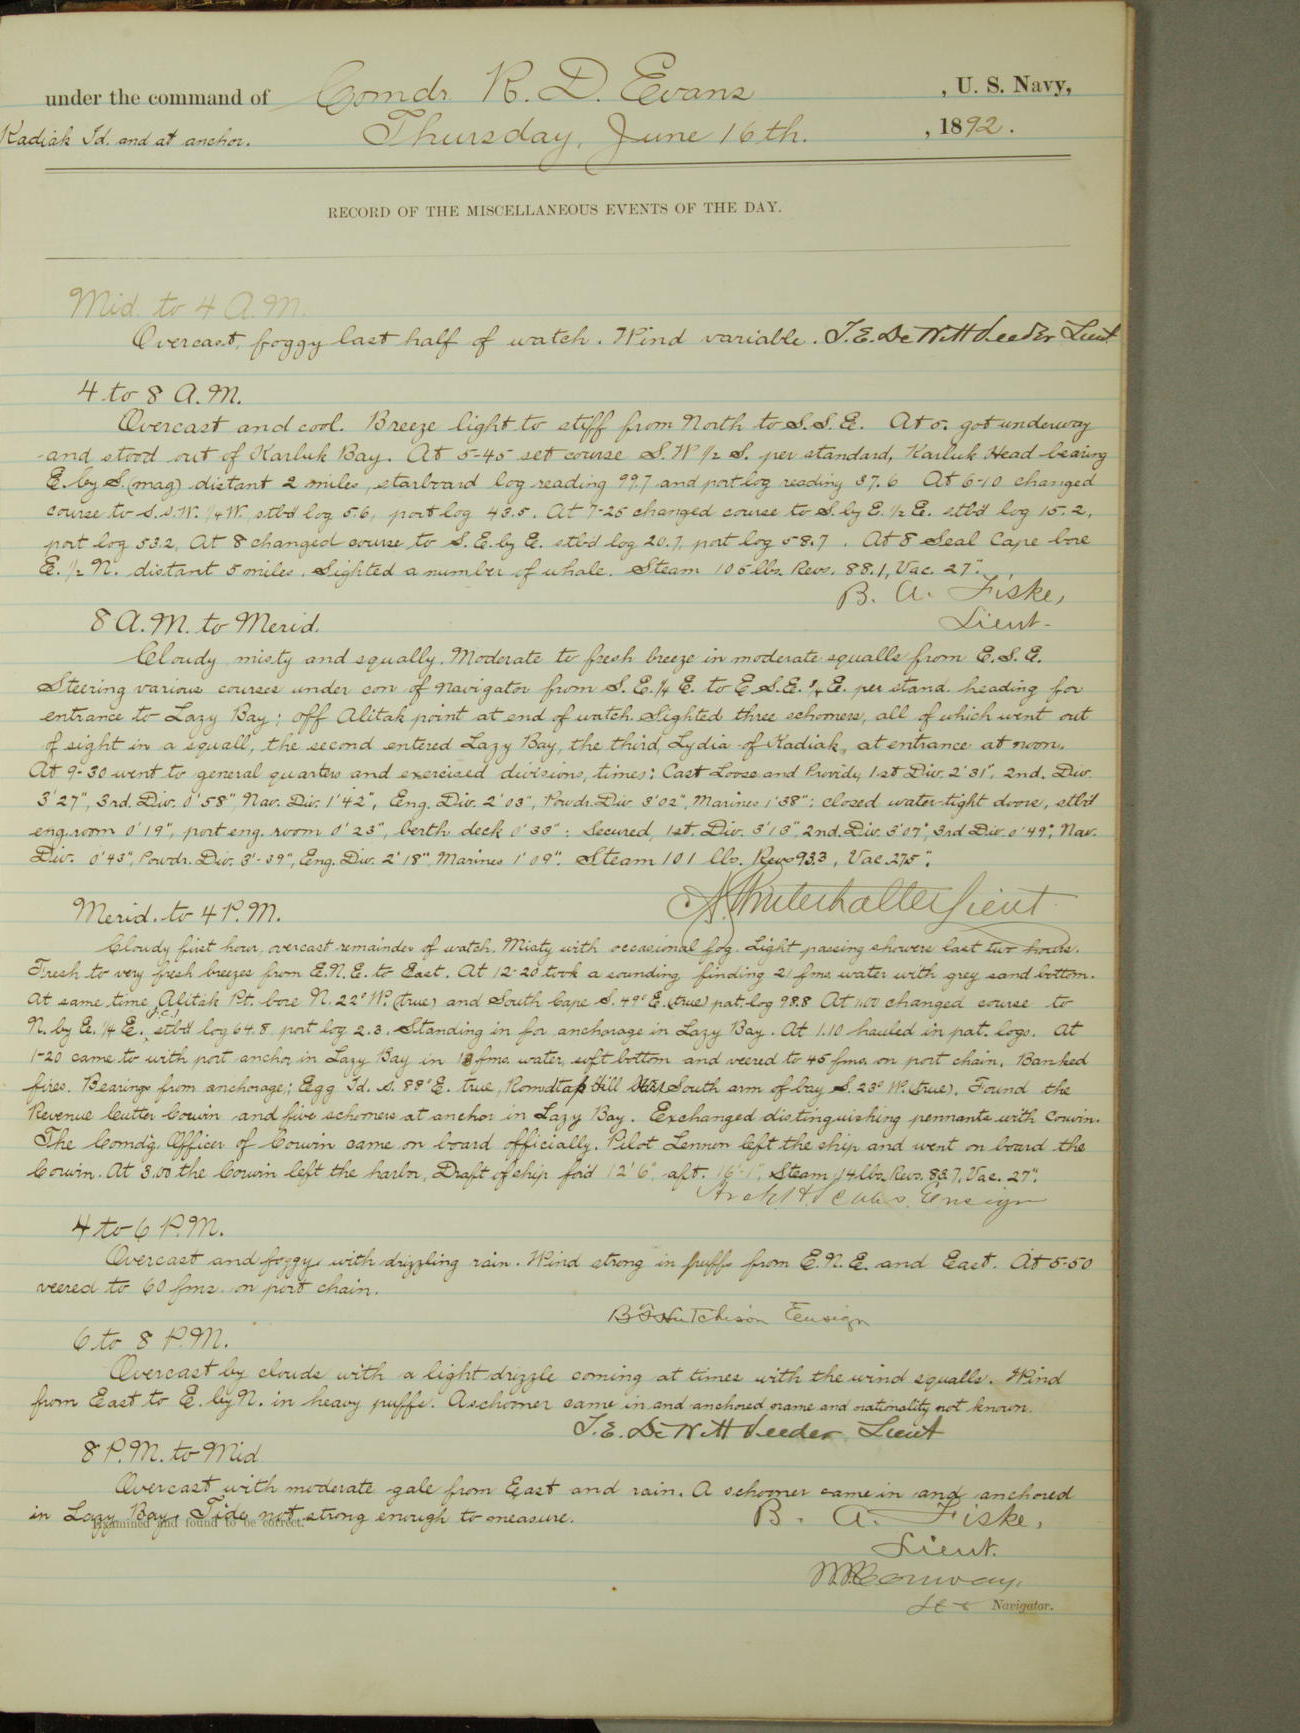 under the command of Comdr. R. D. Evans, U. S. Navy,
Kadiak Id. and at anchor. Thursday, June 16th. , 1892.
RECORD OF THE MISCELLANEOUS EVENTS OF THE DAY.
Mid. to 4 A.M.
Overcast, foggy last half of watch. Wind variable. T. E. DeWitt Veeder Lieut
4 to 8 A.M.
Overcast and cool. Breeze light to stiff from North to S.S.E. At 5. got underway
and stood out of Karluk Bay. At 5-45 set course S.W ½ S. per standard, Karluk Head bearing
E. by S. (mag) distant 2 miles, starboard log reading 99.7 and port log reading 37.6 At 6-10 changed
course to S.S.W. ¼ W. stb'd log 5.6, port log 43.5. At 7-25 changed course to S. by E. ½ E. stb'd log 15.2,
port log 53.2, At 8 changed course to S. E. by E. stb'd log 20.7, port log 58.7 . At 8 Seal Cape bore
E. ½ N. distant 5 miles. Sighted a number of whale. Steam 105 lbs. Revs. 88.1, Vac. 27".
B. A. Fiske,
8 A.M. to Merid. Lieut-
Cloudy misty and squally. Moderate to fresh breeze in moderate squalls from E.S.E.
Steering various courses under con of Navigator from S. E. ¼ E. to E S.E. ¼ E. per stand. heading for
entrance to Lazy Bay; off Alitak point at end of watch. Sighted three schomers, all of which went out
of sight in a squall, the second entered Lazy Bay, the third, Lydia of Kadiak, at entrance at noon.
At 9-30 went to general quarters and exercised divisions, times: Cast Loose and Provide, 1st Div. 2'31", 2nd. Div.
3'27", 3rd. Div. 0'58", Nav. Div. 1'42", Eng. Div. 2'03", Powdr. Div 3'02", Marines 1'38": closed water-tight doors, stb'd
eng. room 0'19", port eng. room 0'23", berth deck 0'33": Secured, 1st. Div. 3'13", 2nd. Div. 3'07", 3rd Div. 0'49", Nav.
Div. 0'43", Powdr. Div. 3'-39", Eng. Div. 2'18", Marines 1'09". Steam 101 lbs. Revs 93.3, Vac. 27.5".
A. G. Winterhalter Lieut
Merid. to 4 P.M.
Cloudy first hour, overcast remainder of watch. Misty with occasional fog. Light passing showers last two hours.
Fresh to very fresh breezes from E.N.E. to East. At 12-20 took a sounding, finding 21 fms. water with grey sand bottom.
At same time Alitak Pt. bore N. 22° W. (true) and South Cape S. 49° E. (true) pat. log 98.8 At 1.00 changed course to
N. by E. ¼ E. (p.c.), stb'd log 64.8 port log 2.3. Standing in for anchorage in Lazy Bay. At 1.10 hauled in pat. logs. At
1-20 came to with port anchor in Lazy Bay in 18 fms. water, soft bottom and veered to 45 fms. on port chain. Banked
fires. Bearings from anchorage; Egg Id. S. 88° E. true, Roundtop Hill South arm of bay S. 23° W. (true). Found the
Revenue Cutter Corwin and five schomers at anchor in Lazy Bay. Exchanged distinguishing pennants with Corwin.
The Comd'g. Officer of Corwin came on board officially. Pilot Lennon left the ship and went on board the
Corwin. At 3.00 the Corwin left the harbor, Draft of ship for'd 12'6", aft. 16'-1", Steam 14 lbs. Revs. 83.7. Vac. 27".
Arch. H. Scales. Ensign
4 to 6 P.M.
Overcast and foggy with drizzling rain. Wind strong in puffs from E.N.E. and East. At 5-50
veered to 60 fms. on port chain.
B F Hutchison Ensign
6 to 8 P.M.
Overcast by clouds with a light drizzle coming at times with the wind squalls. Wind
from East to E. by N. in heavy puffs. A schomer came in and anchored name and nationality not known.
T. E. DeWitt Veeder. Lieut
8 P.M. to Mid
Overcast with moderate gale from East and rain. A schomer came in and anchored
in Lazy Bay. Tide not strong enough to measure. B. A. Fiske,
Examined and found to be correct.
Lieut.
Conway,
Navigator.